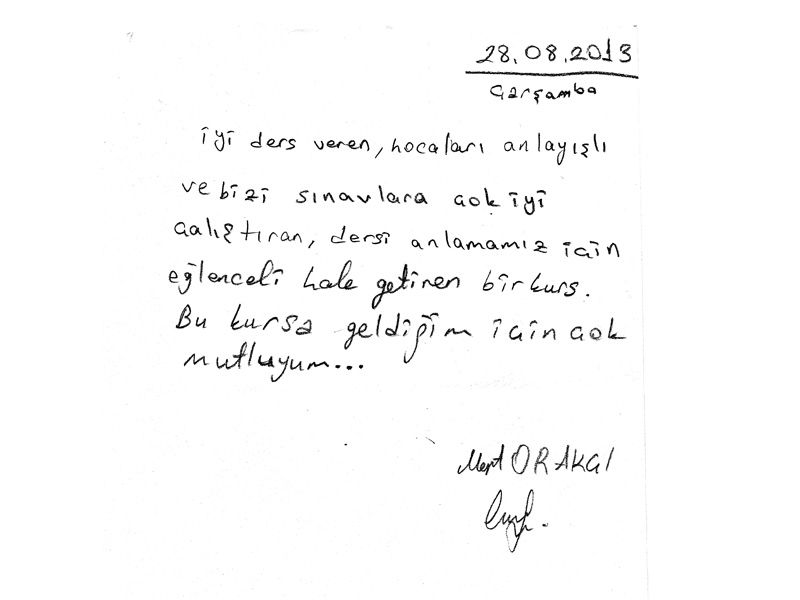 28.08.2013
Çarşamba
iyi ders veren, hocaları anlayışlı
ve bizi sınavlara çok iyi
çalıştıran, dersi anlamamız için
eğlenceli hale getiren bir kurs.
Bu kursa geldiğim için çok
mutluyum...
Mert ORAKÇI